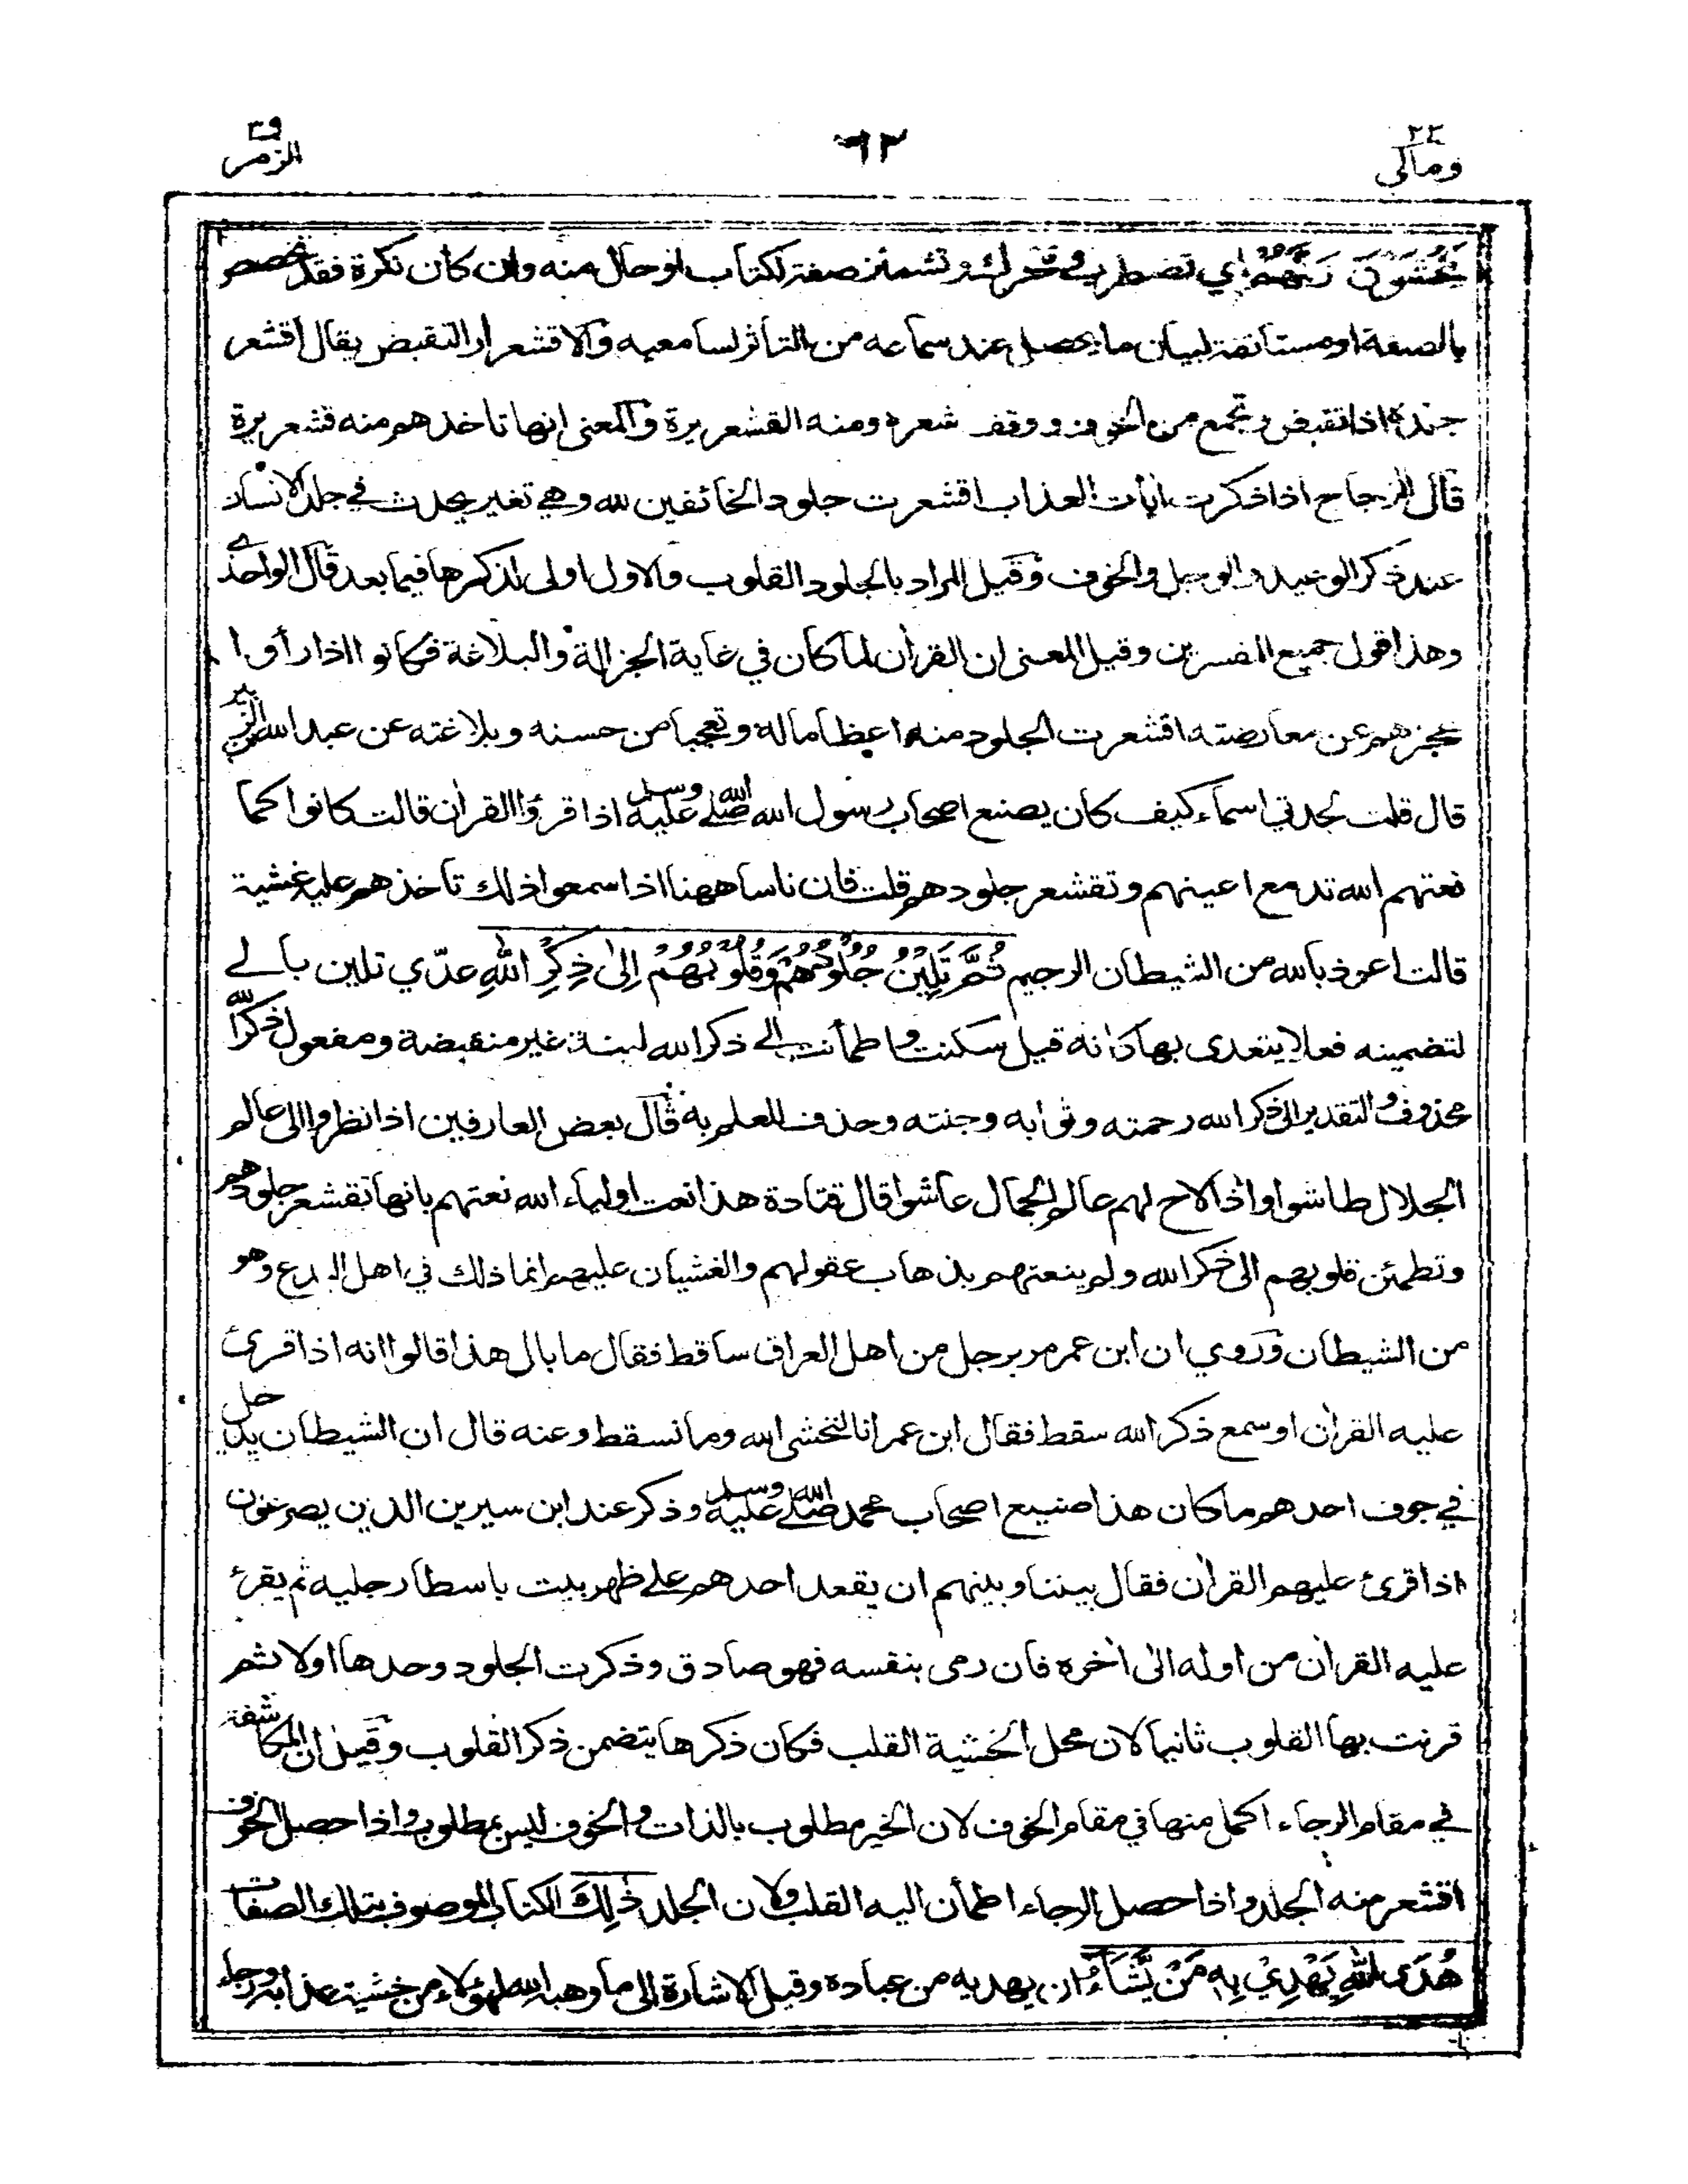 ٢٣
ومالي
٦٢
٣٩
الزمر
يَخْشَوْنَ رَبَّهُمْ اي تضطرب وتتحرك وتشمئز صفة لكتاب او حال منه وان كان نكرة فقد تخصص
بالصفة او مستانفة لبيان ما يحصل عند سماعه من التأثر لسامعيه والاقشعرار التقبض يقال اقشعر
جلده اذا تقبض وتجمع من الخوف ووقف شعره ومنه القشعريرة والمعنى انها تاخذهم منه قشعريرة
قال الزجاج اذا ذكرت اٰيات العذاب اقشعرت جلود الخائفين لله وهي تغير يحدث في جلد الانسان
عند ذكر الوعيد والوجل والخوف وقيل المراد بالجلود القلوب والاول اولى لذكرها فيما بعد قال الواحدي
وهذا قول جميع المفسرين وقيل المعنى ان القراٰن لما كان في غاية الجزالة والبلاغة فكانوا اذا رأوا
عجزهم عن معارضته اقشعرت الجلود منه اعظاما له وتعجبا من حسنه وبلاغته عن عبد الله بن الزبير
قال قلت لجدتي اسماء كيف كان يصنع اصحاب رسول الله صلى الله عليه وسلم اذا قرؤا القراٰن قالت كانوا كما
نعتهم الله تدمع اعينهم وتقشعر جلودهم قلت فان ناسا ههنا اذا سمعوا ذلك تاخذهم عليه غشية
قالت اعوذ بالله من الشيطان الرجيم ثُمَّ تَلِيْنُ جُلُوْدُهُمْ وَقُلُوْبُهُمْ اِلىٰ ذِكْرِ اللهِ عدّي تلين بالى
لتضمينه فعلا يتعدى بها كانه قيل سكنت واطمأنت الى ذكر الله لينة غير منقبضة ومفعول ذكر الله
محذوف والتقدير الى ذكر الله رحمته وثوابه وجنته وحذف للعلم به قال بعض العارفين اذا نظروا الى عالم
الجلال طاشوا واذا لاح لهم عالم الجمال عاشوا قال قتادة هذا نعت اولياء الله نعتهم بانها تقشعر جلودهم
وتطمئن قلوبهم الى ذكر الله ولم ينعتهم بذهاب عقولهم والغشيان عليهم انما ذلك في اهل البدع وهو
من الشيطان وروي ان ابن عمر مر برجل من اهل العراق ساقط فقال ما بال هذا قالوا انه اذا قرئ
عليه القراٰن او سمع ذكر الله سقط فقال ابن عمر انا لنخشى الله وما نسقط وعنه قال ان الشيطان يدخل
في جوف احدهم ما كان هذا صنيع اصحاب محمد صلى الله عليه وسلم وذكر عند ابن سيرين الذين يصرعون
اذا قرئ عليهم القراٰن فقال بيننا وبينهم ان يقعد احدهم على ظهر بيت باسطا رجليه ثم يقرئ
عليه القراٰن من اوله الى اٰخره فان رمى بنفسه فهو صادق وذكرت الجلود وحدها اولا ثم
قرنت بها القلوب ثانيا لان محل الخشية القلب فكان ذكرها يتضمن ذكر القلوب وقيل ان المكاشفة
في مقام الرجاء اكمل منها في مقام الخوف لان الخير مطلوب بالذات والخوف ليس بمطلوب واذا حصل الخوف
اقشعر منه الجلد واذا حصل الرجاء اطمأن اليه القلب ولان الجلد ذٰلِكَ الكتاب الموصوف بتلك الصفات
هُدَى اللهِ يَهْدِيْ بِهِ مَنْ يَّشَآءُ ان يهديه من عباده وقيل الاشارة الى ما وهبه الله لهؤلاء من خشية عذابه ورجاء